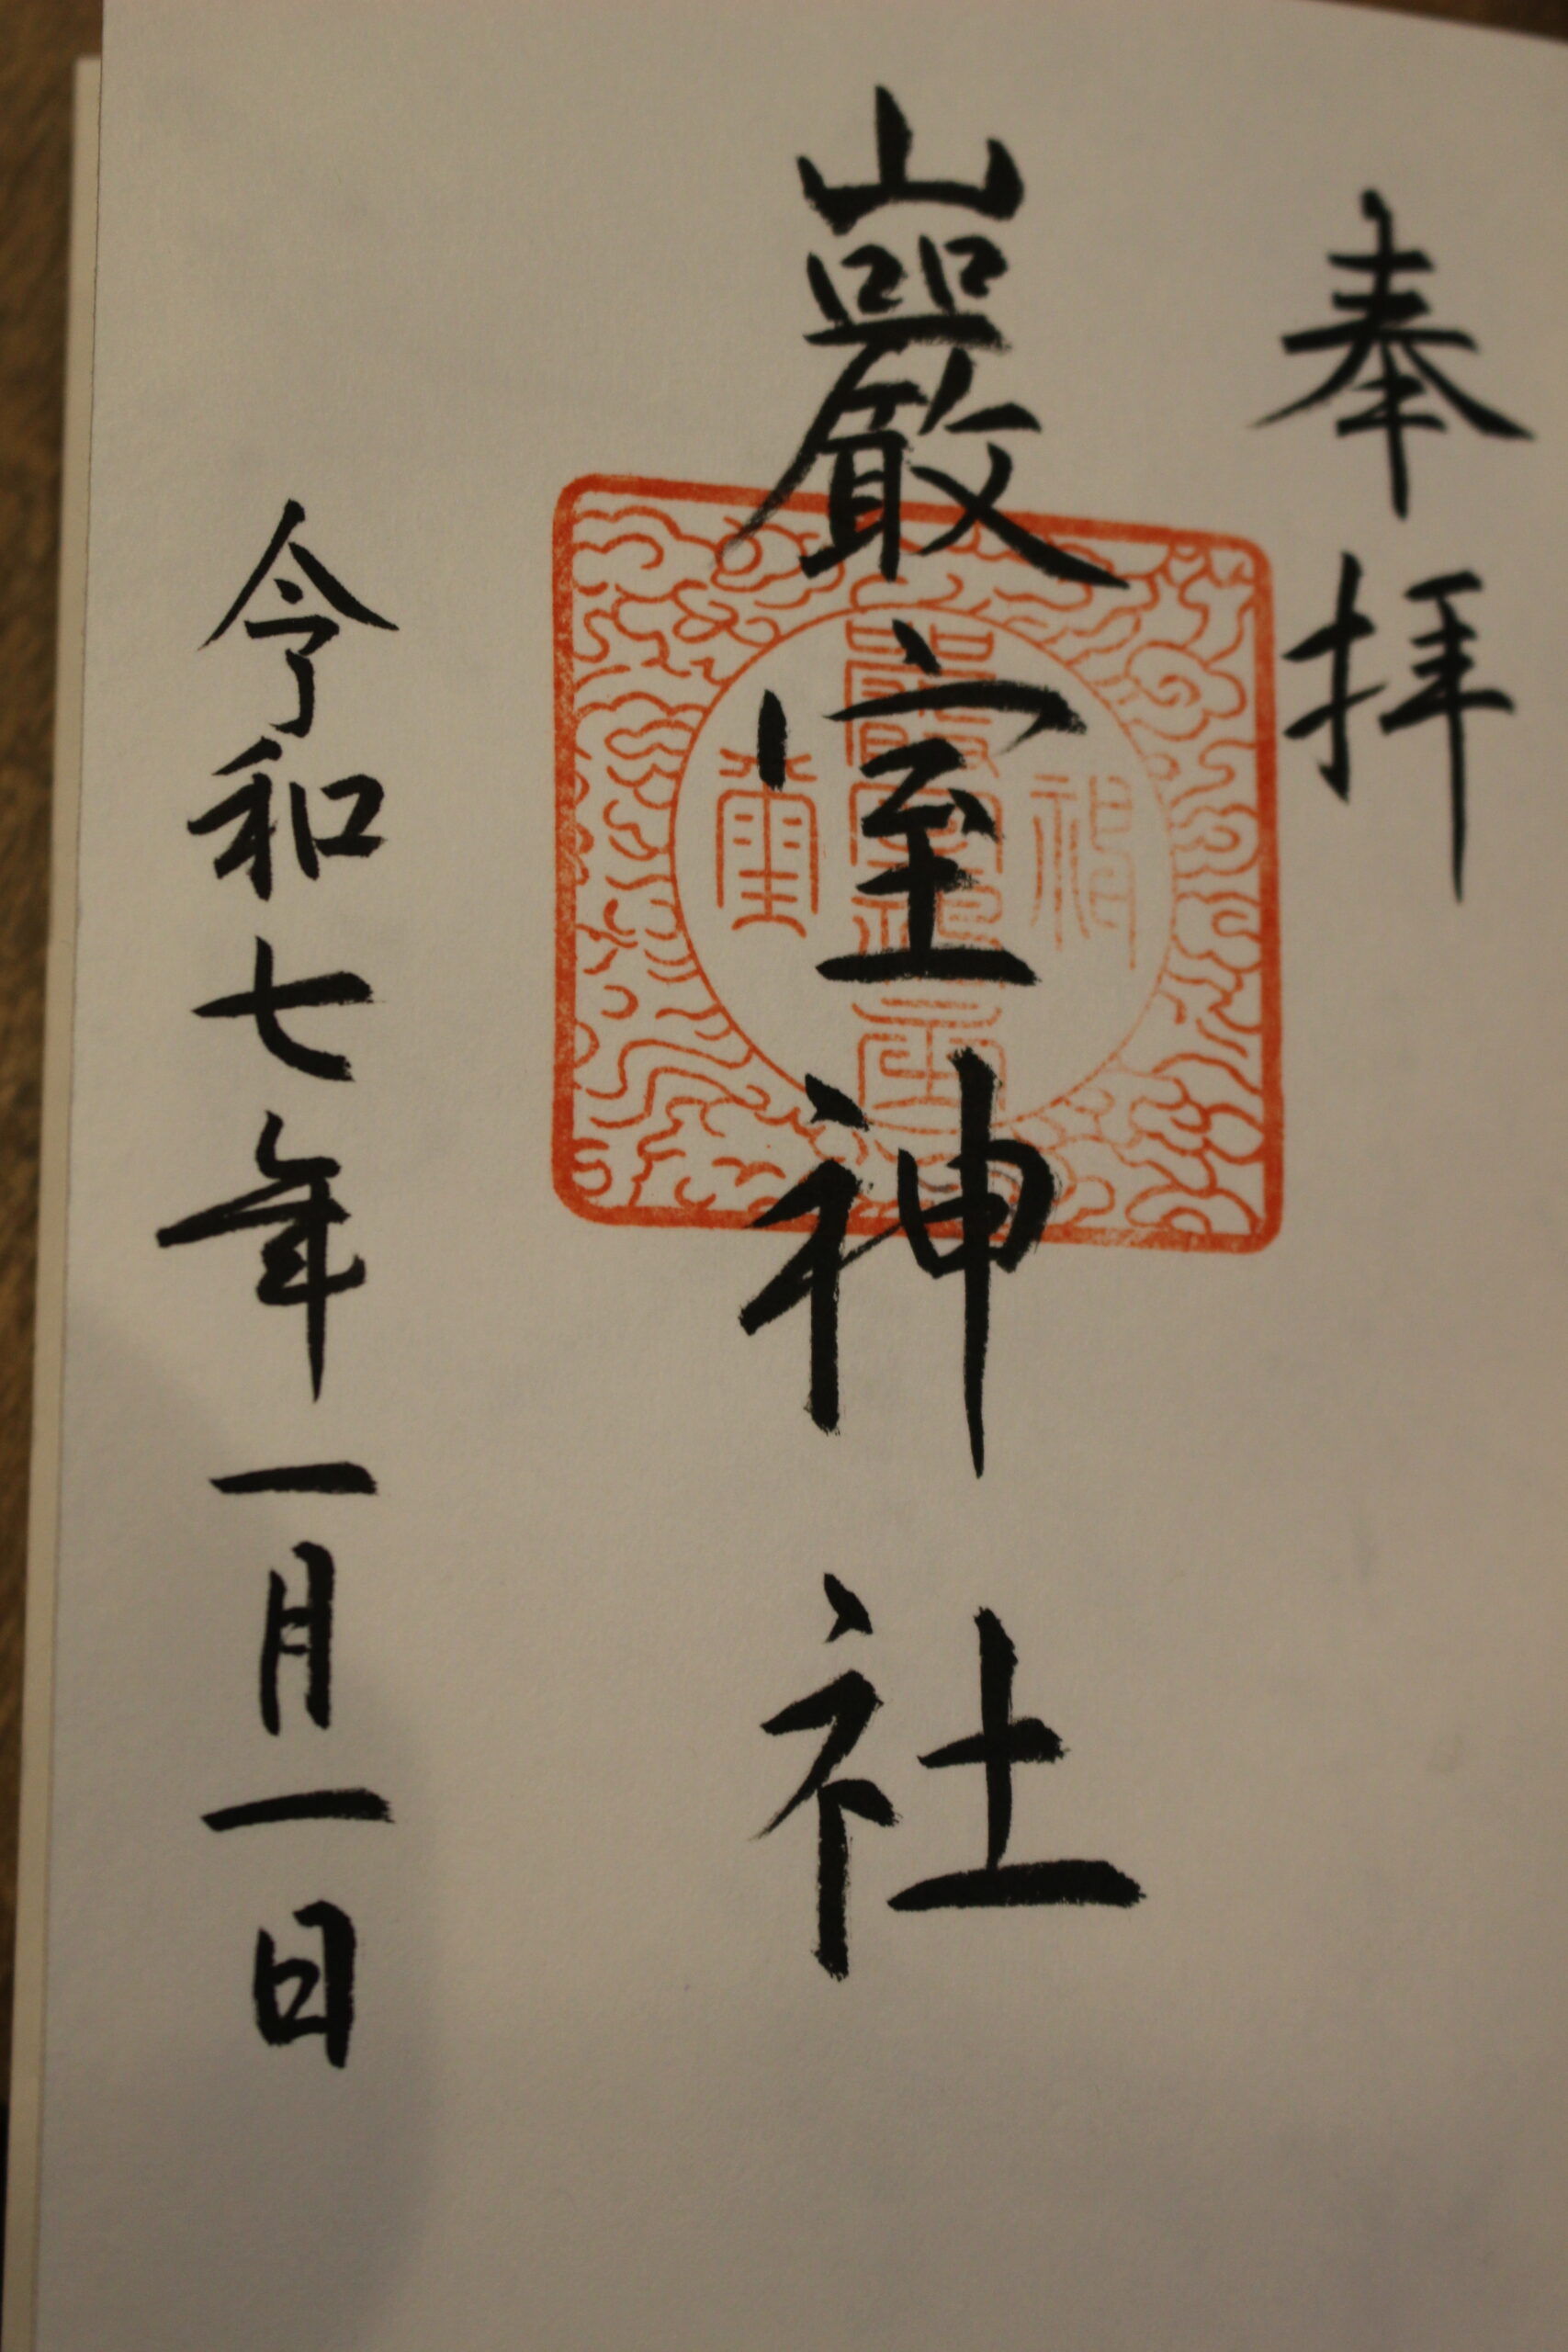 奉拝
巖室神社
令和七年一月一日